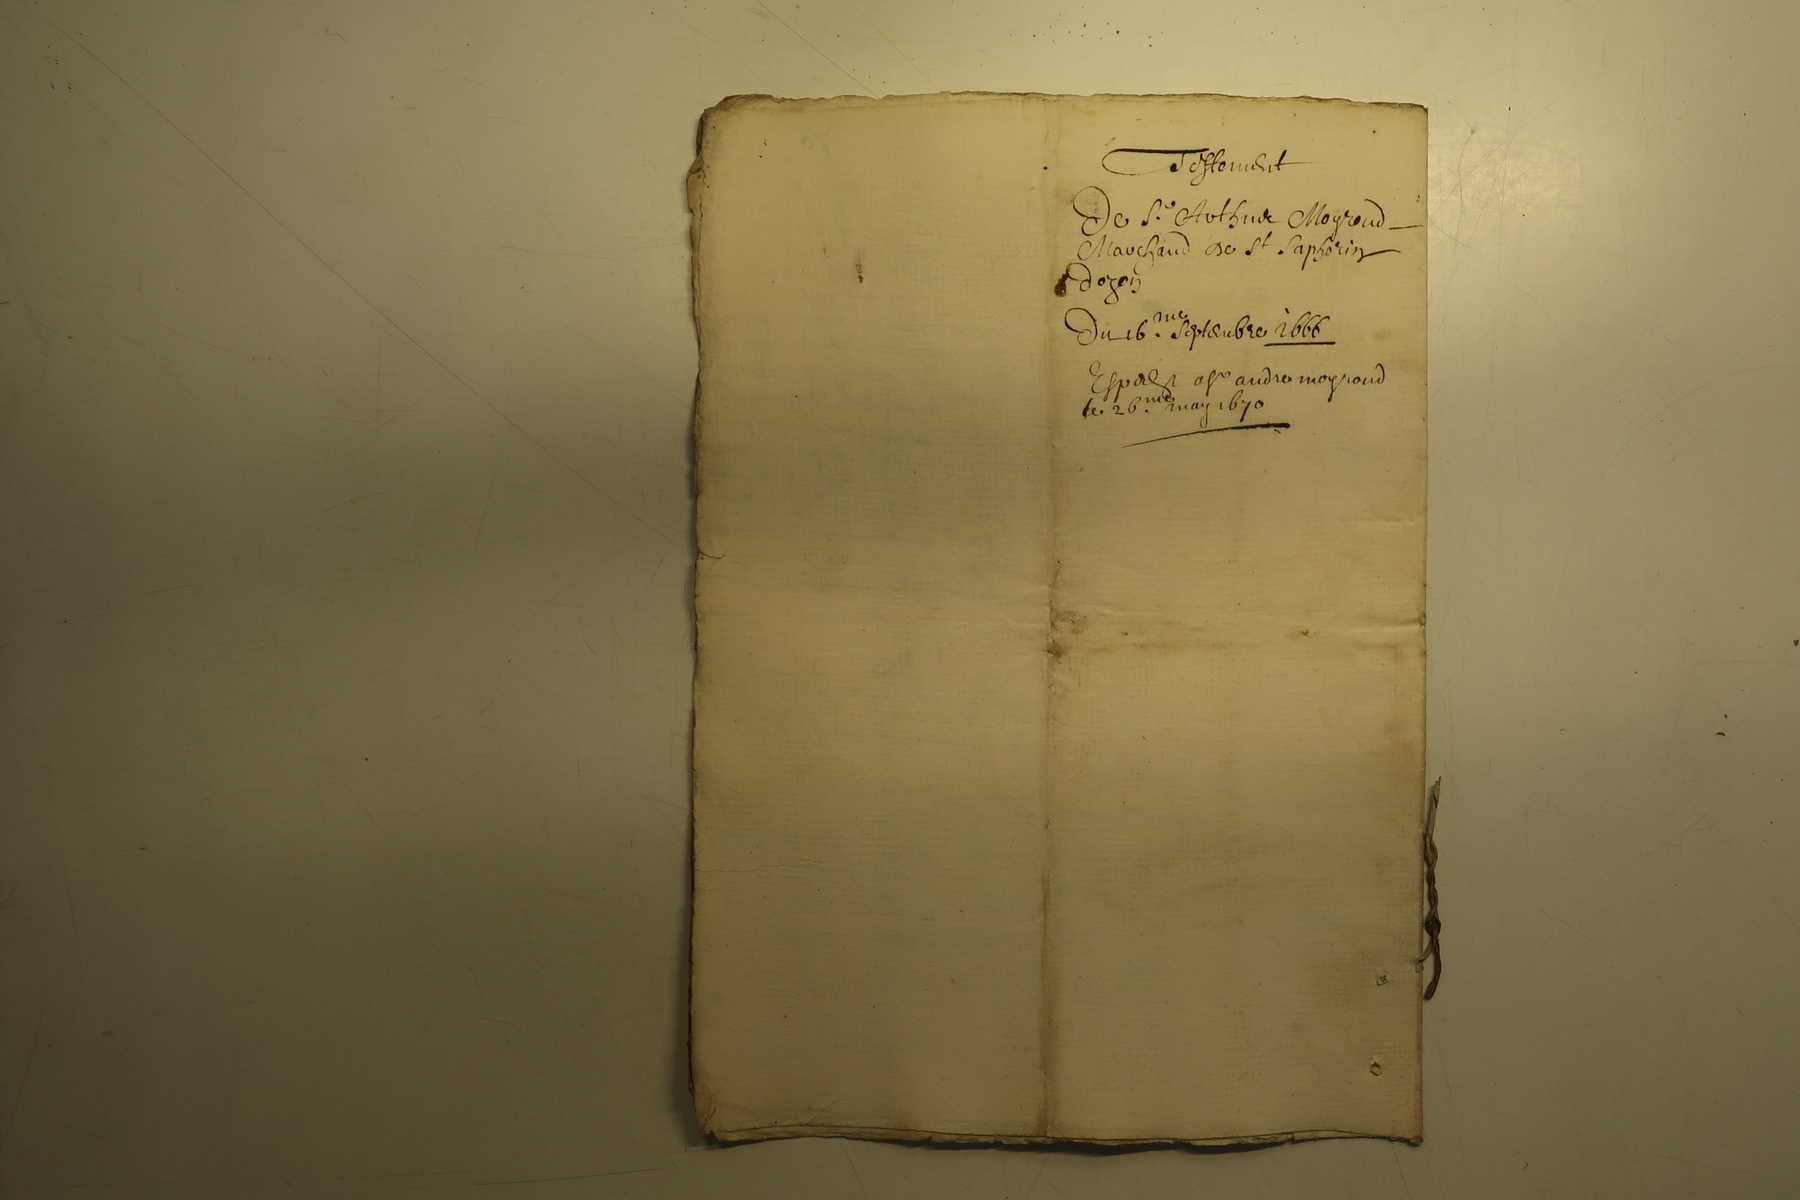 Testement
De Sr Arthur Moyroud
Marchand de St Saphorin
dozon
Du 16.me Septembre 1666
Expedié a Sr andre moyroud
le 26.me may 1670